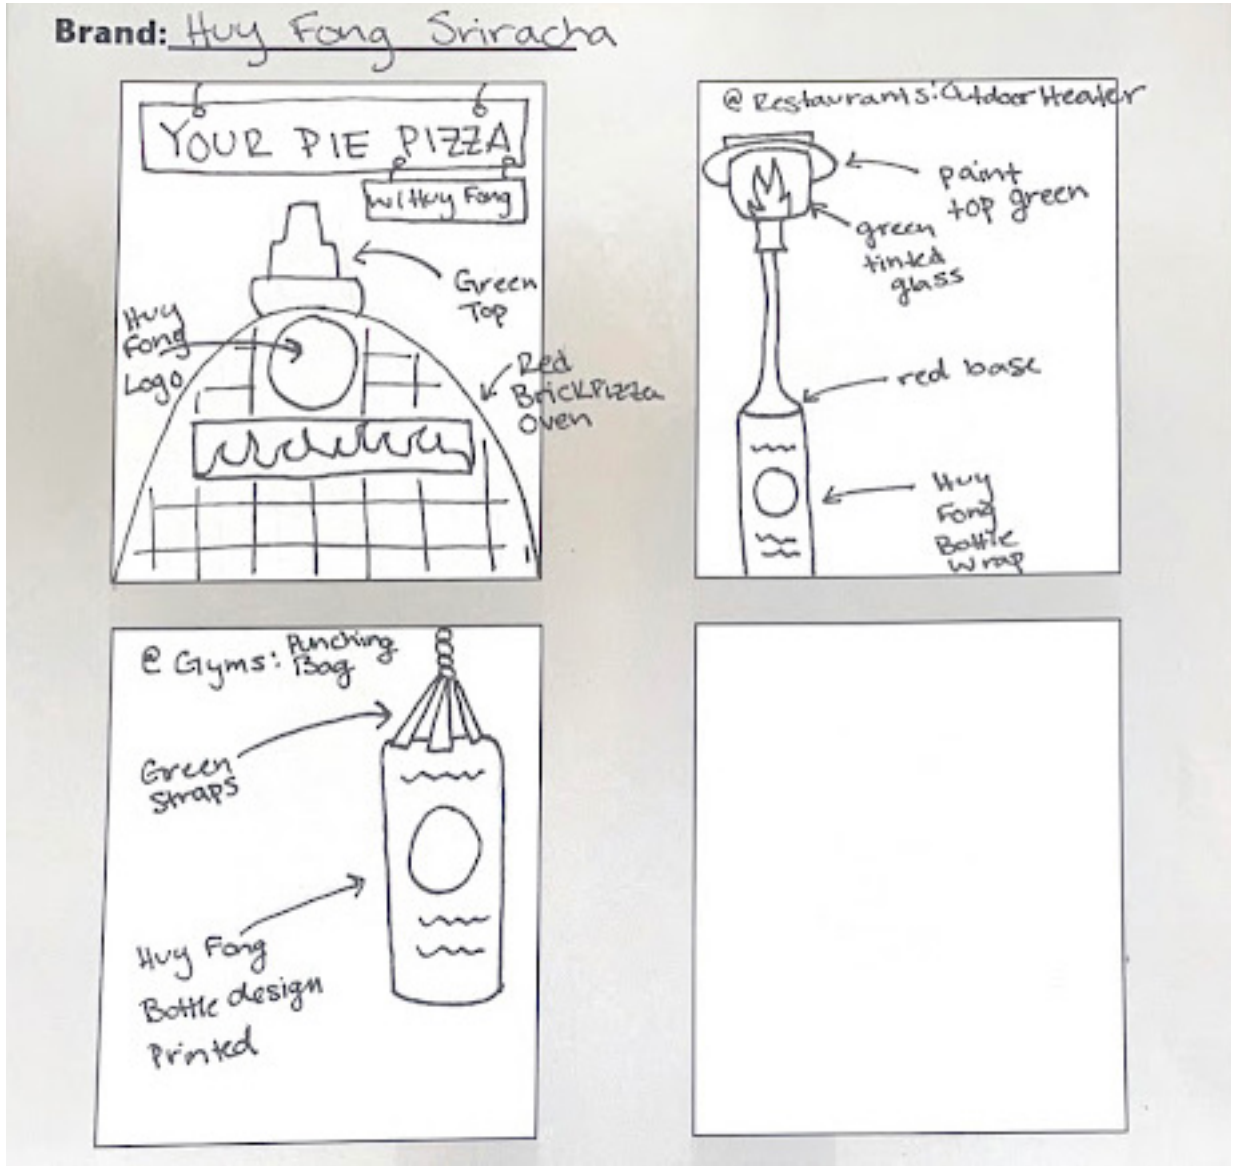 Brand: Huy Fong Sriracha
YOUR PIE PIZZA
w/Huy Fong
Green
Top
Huy
Fong
Logo
Red
BrickPizza
Oven
@ Restaurants: Outdoor Heater
paint
top green
green
tinted
glass
red base
Huy
Fong
Bottle
Wrap
@ Gyms: Punching
Bag
Green
Straps
Huy Fong
Bottle design
Printed